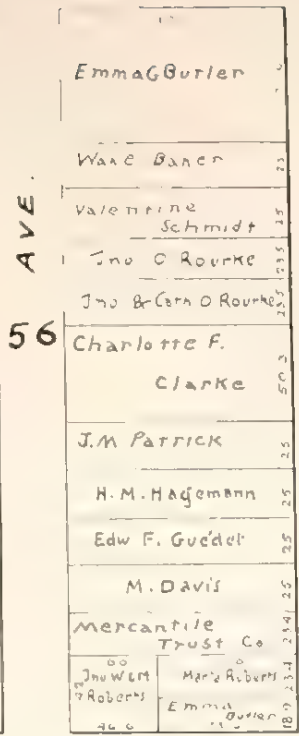 Emma G Butler
AVE.
Wane Baner
25
Valentine
Schmidt
25
Jno O Rourke
23 5
Jno & Cath O Rourke
25 5
56
Charlotte F.
Clarke
50 3
J. M Patrick
25
H. M. Hagemann
25
Edw F. Guedel
25
M. Davis
25
Mercantile
Trust Co
23 41
Jno W &
Roberts
46 6
Maria Roberts
Emma
Butler
18 9 23 4